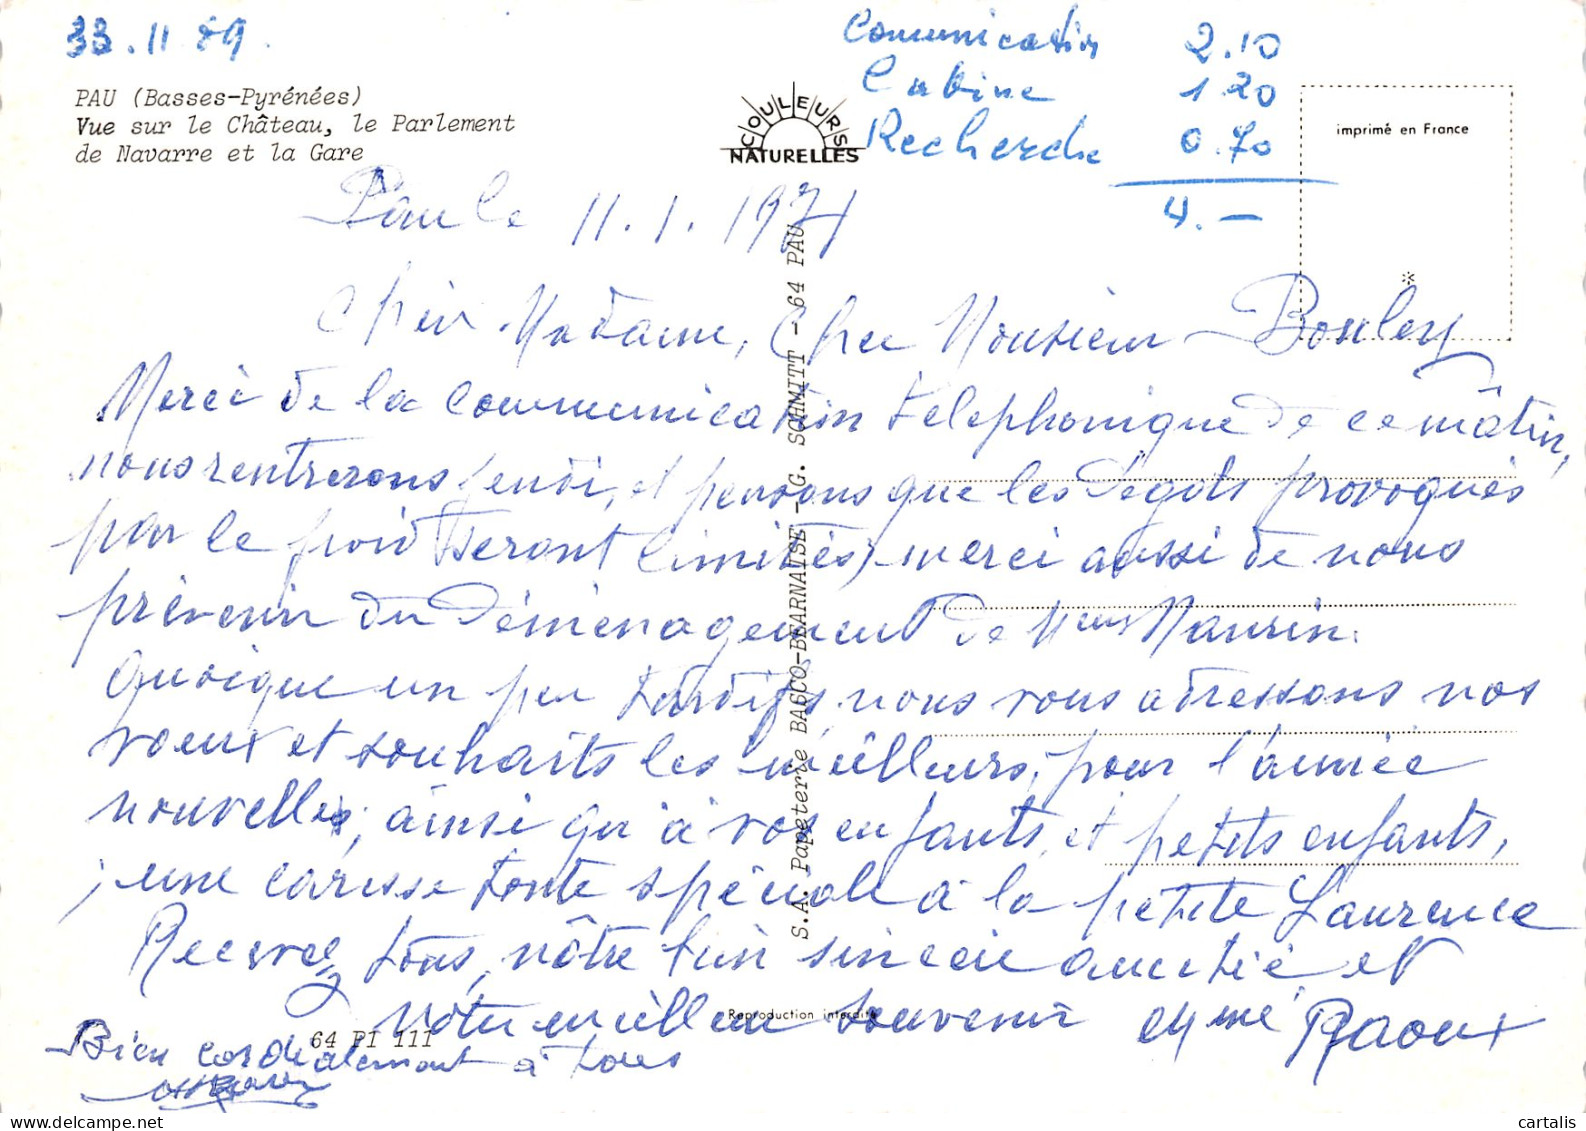 33.11 89.
Comunication 2.10
Cabine 1 20
Recherche 0.70
4.—
PAU (Basses-Pyrénées)
Vue sur le Château, le Parlement
de Navarre et la Gare
COULEURS
NATURELLES
imprimé en France
Pau le 11.1.1971
Chère Madame, Cher Monsieur Bouley
Merci de la communication téléphonique de ce mâtin,
nous rentrerons jeudi, et pensons que les dégats provoqués
par le froid seront limités, merci aussi de nous
prévenir du déménagement de Maurin.
Quoique un peu tardifs, nous vous adressons nos
voeux et souhaits les meilleurs, pour l'année
nouvelle, ainsi qu'à vos enfants, et petits enfants,
, une caresse toute spéciale à la petite Laurence
Recevez tous, nôtre bien sincère amitié et
nôtre meilleur souvenir
Raoux
Bien cordialement à tous
S.A. Papeterie BASCO-BEARNAISE - G. SCHMITT - 64 PAU
Reproduction interdite
64 PI 111
cartalis